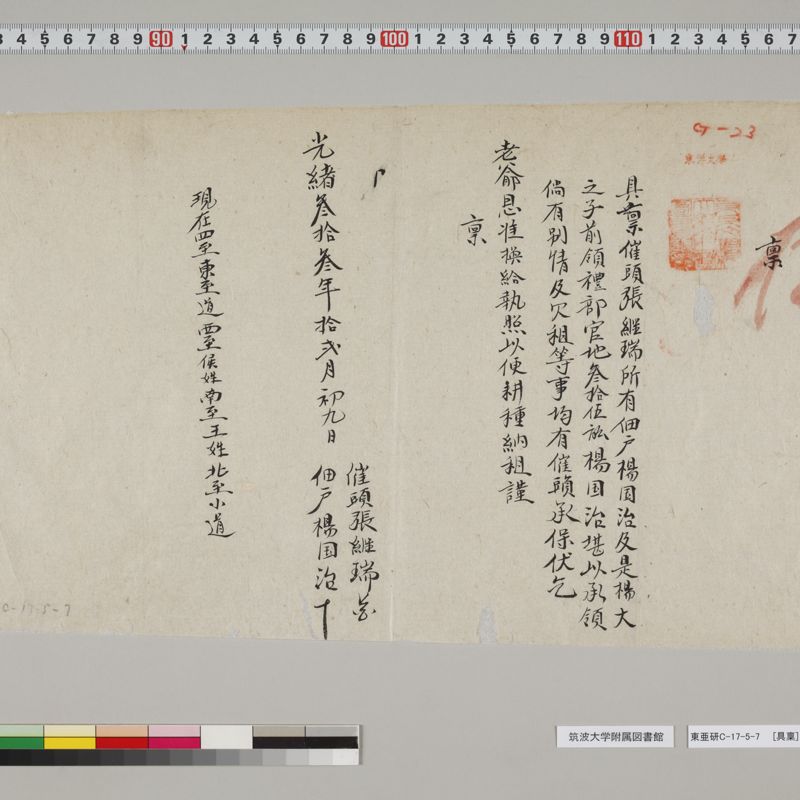 稟
具稟催頭張継瑞所有佃戶楊国治及是楊大
之子前領禮部官地叁拾伍畝楊国治堪以承領
倘有别情及欠租等事均有催頭承保伏乞
老爺恩准換給執照以便耕種納租謹
稟
光緒叁拾叁年拾弍月初九日
催頭張継瑞
佃戶楊国治十
現在四至東至道西至侯姓南至王姓北至小道
G-23
0-17-5-7
筑波大学附属図書館
東亜研C-17-5-7 [具稟]
3 4 5 6 7 8 9 90 1 2 3 4 5 6 7 8 9 100 1 2 3 4 5 6 7 8 9 110 1 2 3 4 5 6 7